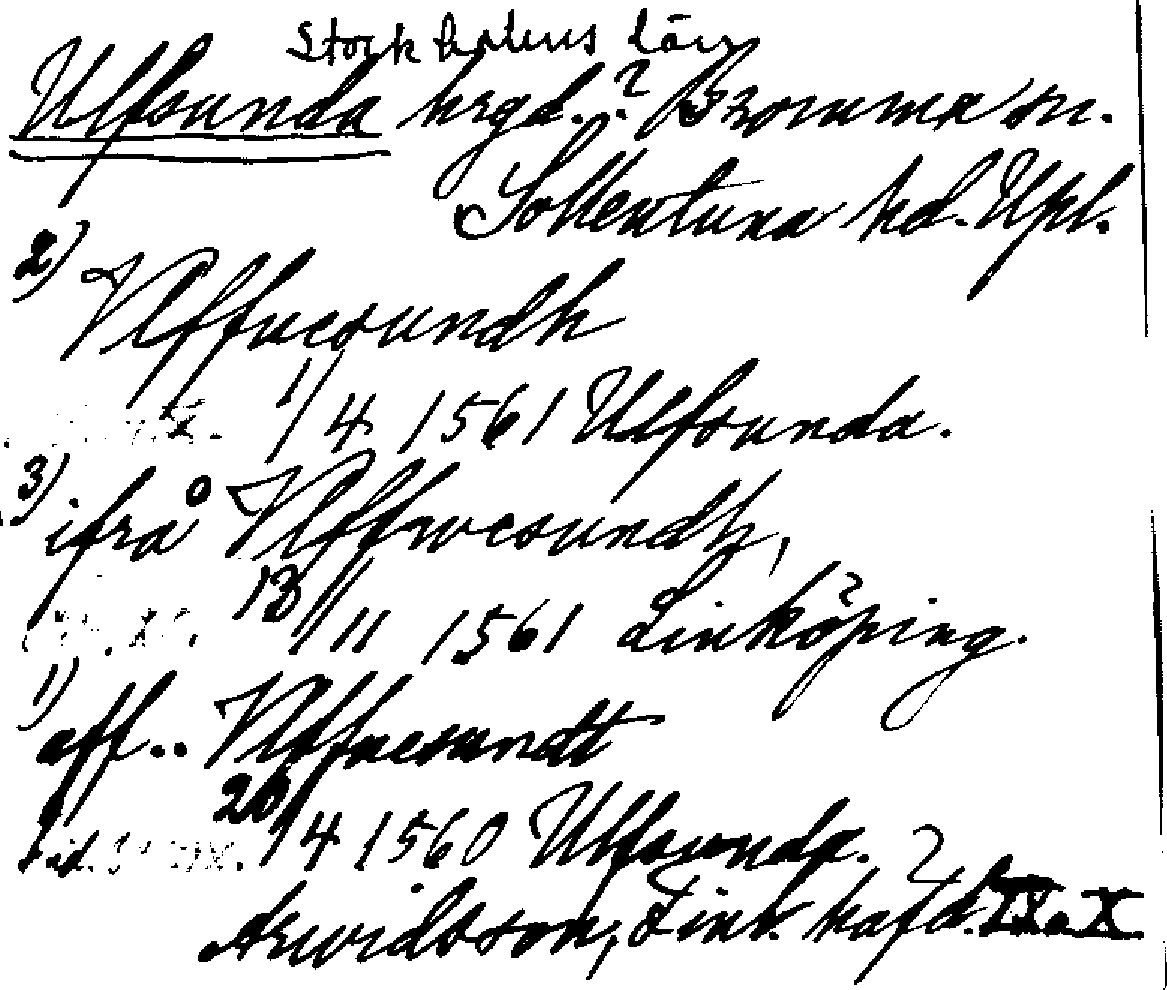 Stockholms län
Ulfsunda hrgd.? Bromma sn.
Sollentuna hd. Upl.
2)
Vlffuesundh
1/4 1561 Ulfsunda.
3)
ifrå Vlffwesundh,
13/11 1561 Linköping.
1)
aff.. Vlffuesundt
20/4 1560 Ulfsunda.
Arwidsson, Finl. häfd. IX o. X